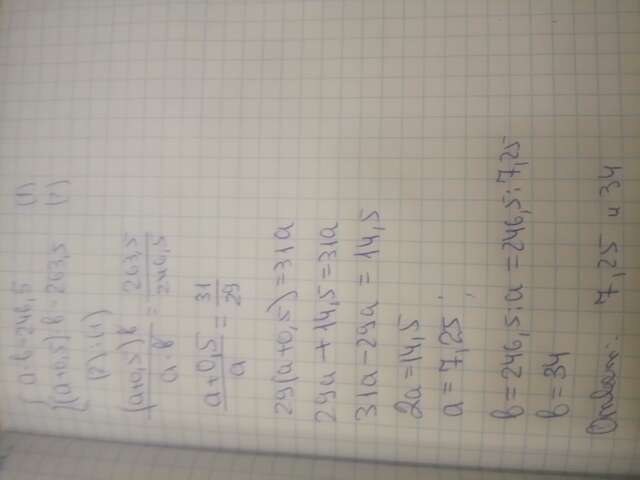 { a·b = 246,5 (1)
{ (a+0,5) b = 263,5 (2)
(2) : (1)
(a+0,5) b / a·b = 263,5 / 246,5
a+0,5 / a = 31 / 29
29(a+0,5) = 31a
29a + 14,5 = 31a
31a - 29a = 14,5
2a = 14,5
a = 7,25 ;
b = 246,5 : a = 246,5 : 7,25
b = 34
Ответ: 7,25 и 34